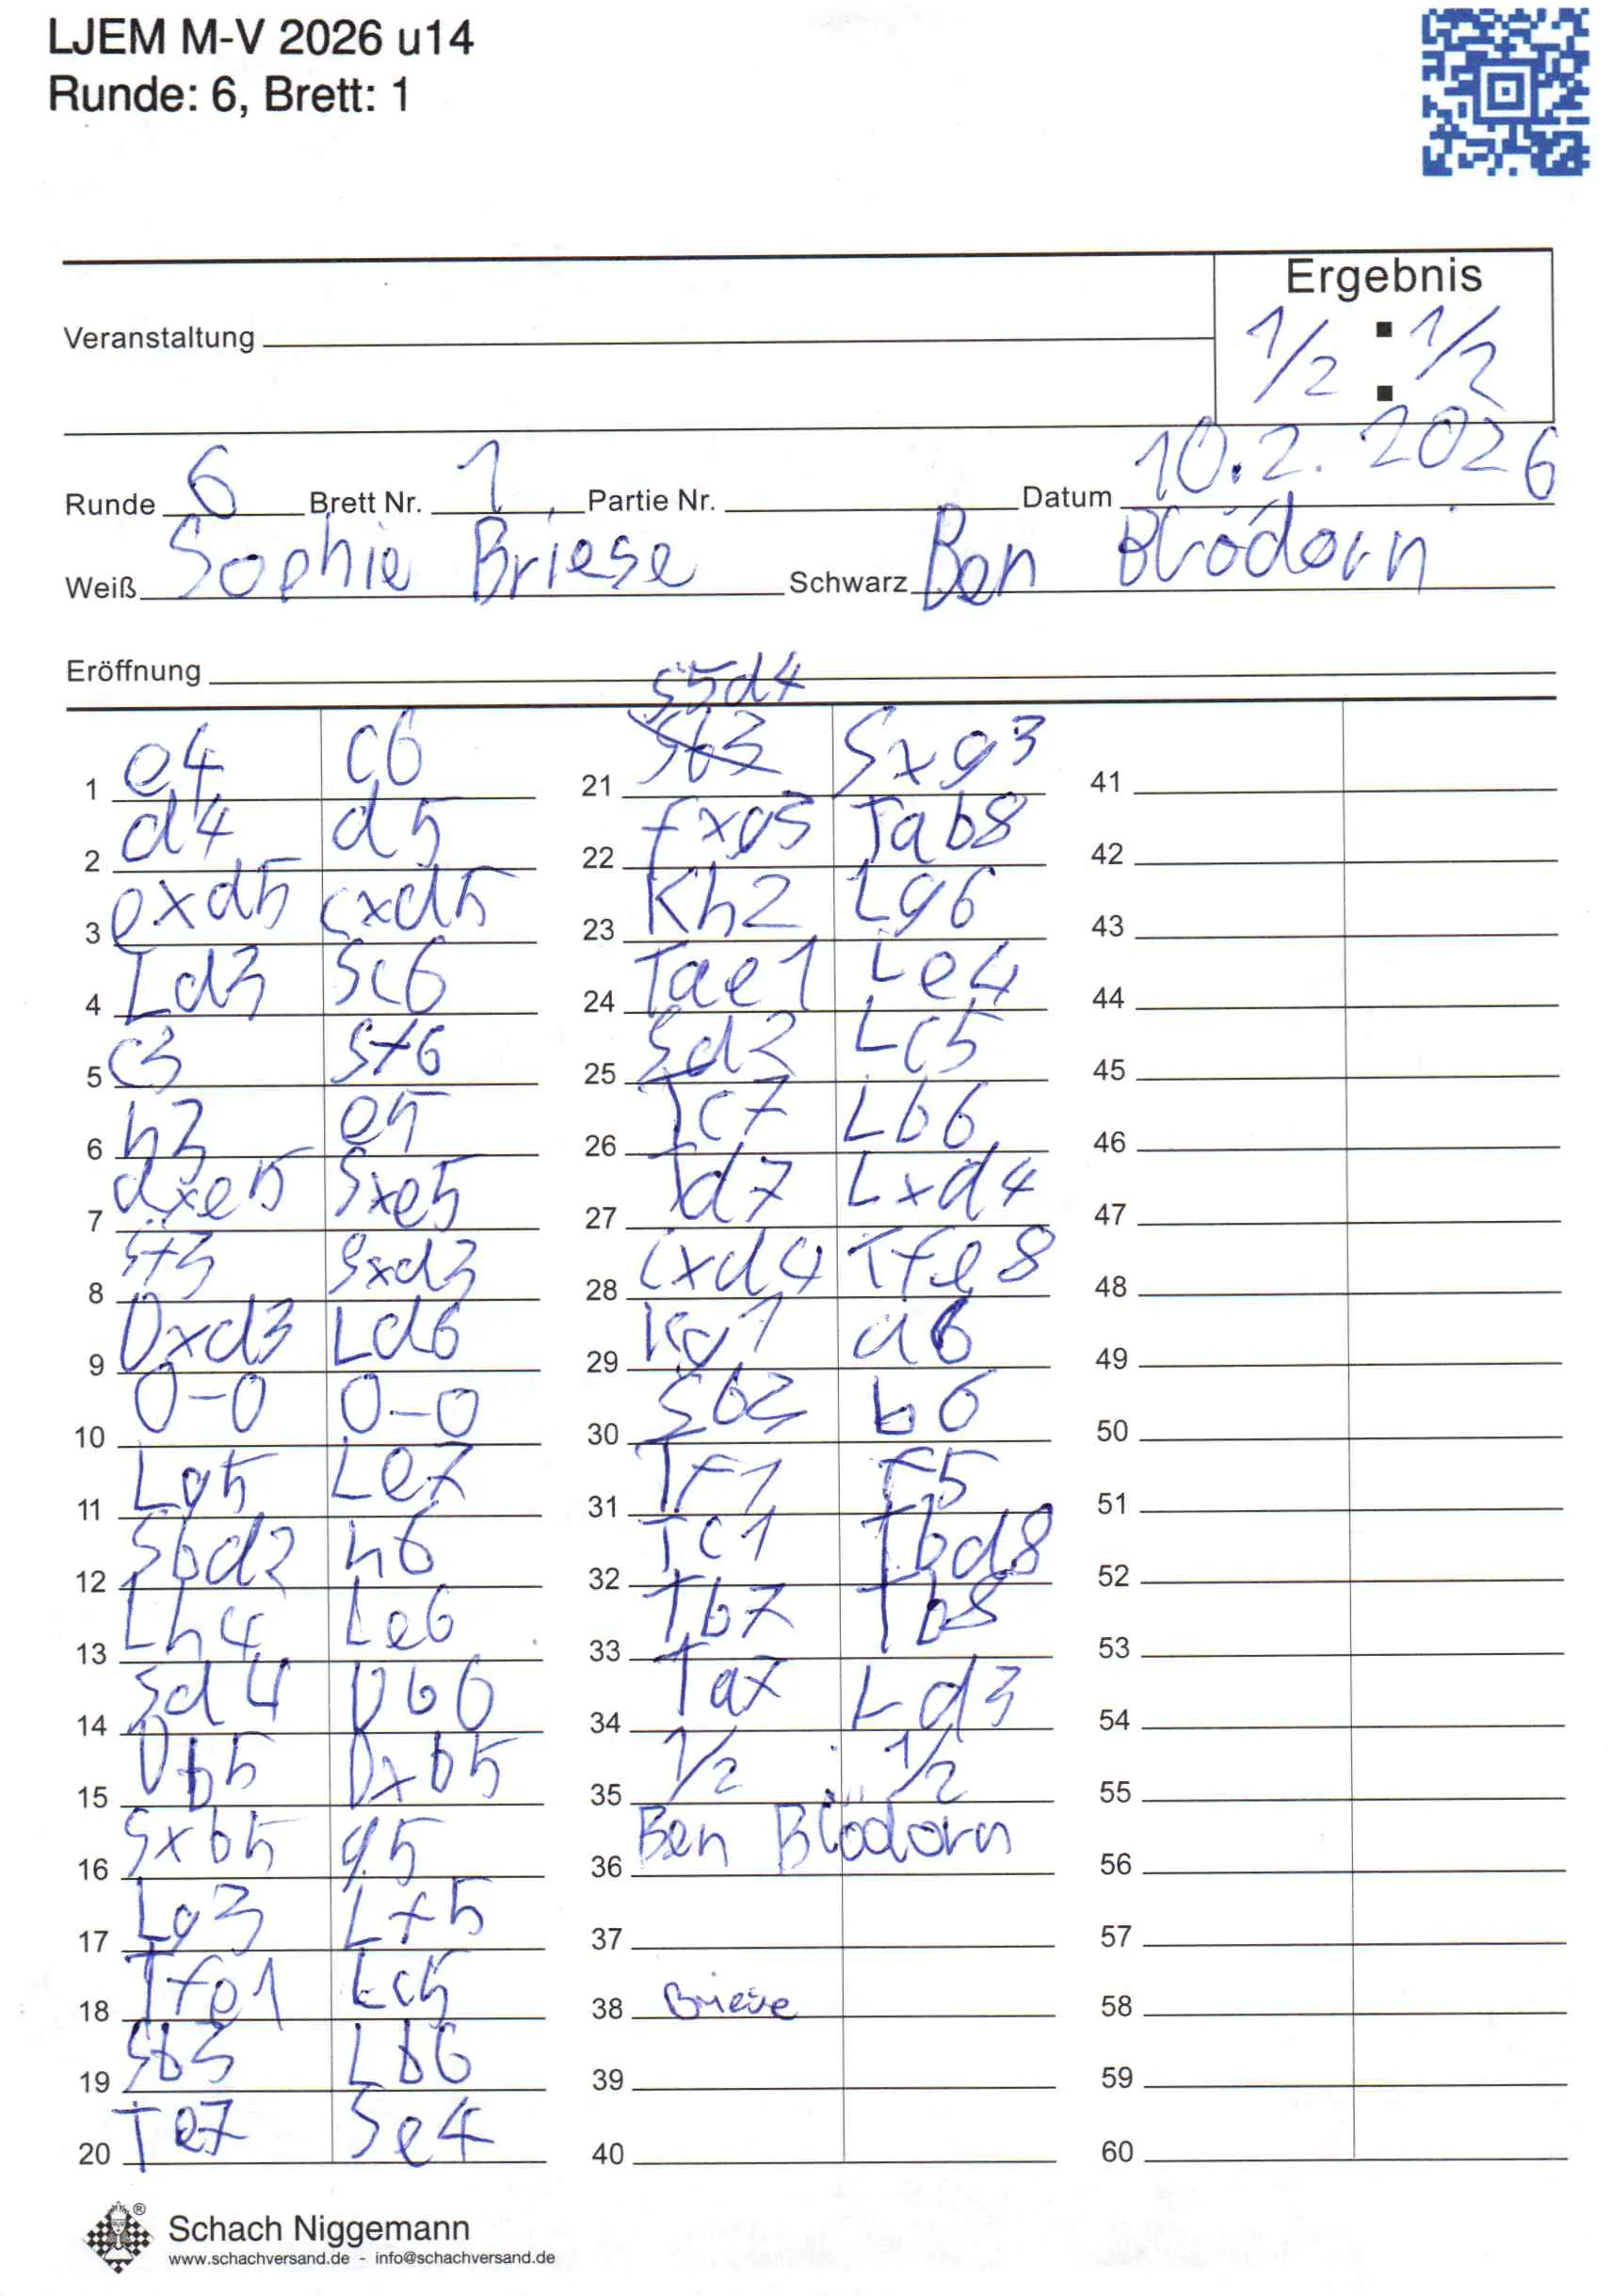 LJEM M-V 2026 u14
Runde: 6, Brett: 1
Ergebnis
Veranstaltung
1/2 : 1/2
Runde 6 Brett Nr. 1 Partie Nr. Datum 10.2.2026
Weiß Sophie Briese Schwarz Ben Blödorn
Eröffnung
S5d4
1 e4 c6
2 d4 d5
3 exd5 cxd5
4 Ld3 Sc6
5 c3 Sf6
6 h3 e5
7 dxe5 Sxe5
8 Sf3 Sxd3
9 Dxd3 Ld6
10 0-0 0-0
11 Lg5 Le7
12 Sbd2 h6
13 Lh4 Le6
14 Sd4 Db6
15 Db5 Dxb5
16 Sxb5 g5
17 Lg3 Lf5
18 Tfe1 Lc5
19 Sb3 Lb6
20 Te7 Se4
21 Sxg3
22 fxg3 Tab8
23 Kh2 Lg6
24 Tae1 Le4
25 Sd2 Lc5
26 Tc7 Lb6
27 Td7 Lxd4
28 cxd4 Tfe8
29 Kg1 a6
30 Sb3 b6
31 Tf1 f5
32 Tc1 Tbd8
33 Tb7 Tb8
34 Ta7 Ld3
35 1/2 : 1/2
36 Ben Blödorn
37
38 Briese
39
40
41
42
43
44
45
46
47
48
49
50
51
52
53
54
55
56
57
58
59
60
Schach Niggemann
www.schachversand.de - info@schachversand.de